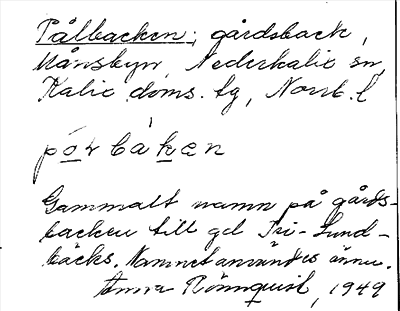 Pålbacken; gårdsback,
Månsbyn, Nederkalix sn,
Kalix doms. tg, Norrb. l
Gammalt namn på gårds-
backen till gd Pri-Lund-
bäcks. Namnet användes ännu.
Anna Rönnquist, 1949